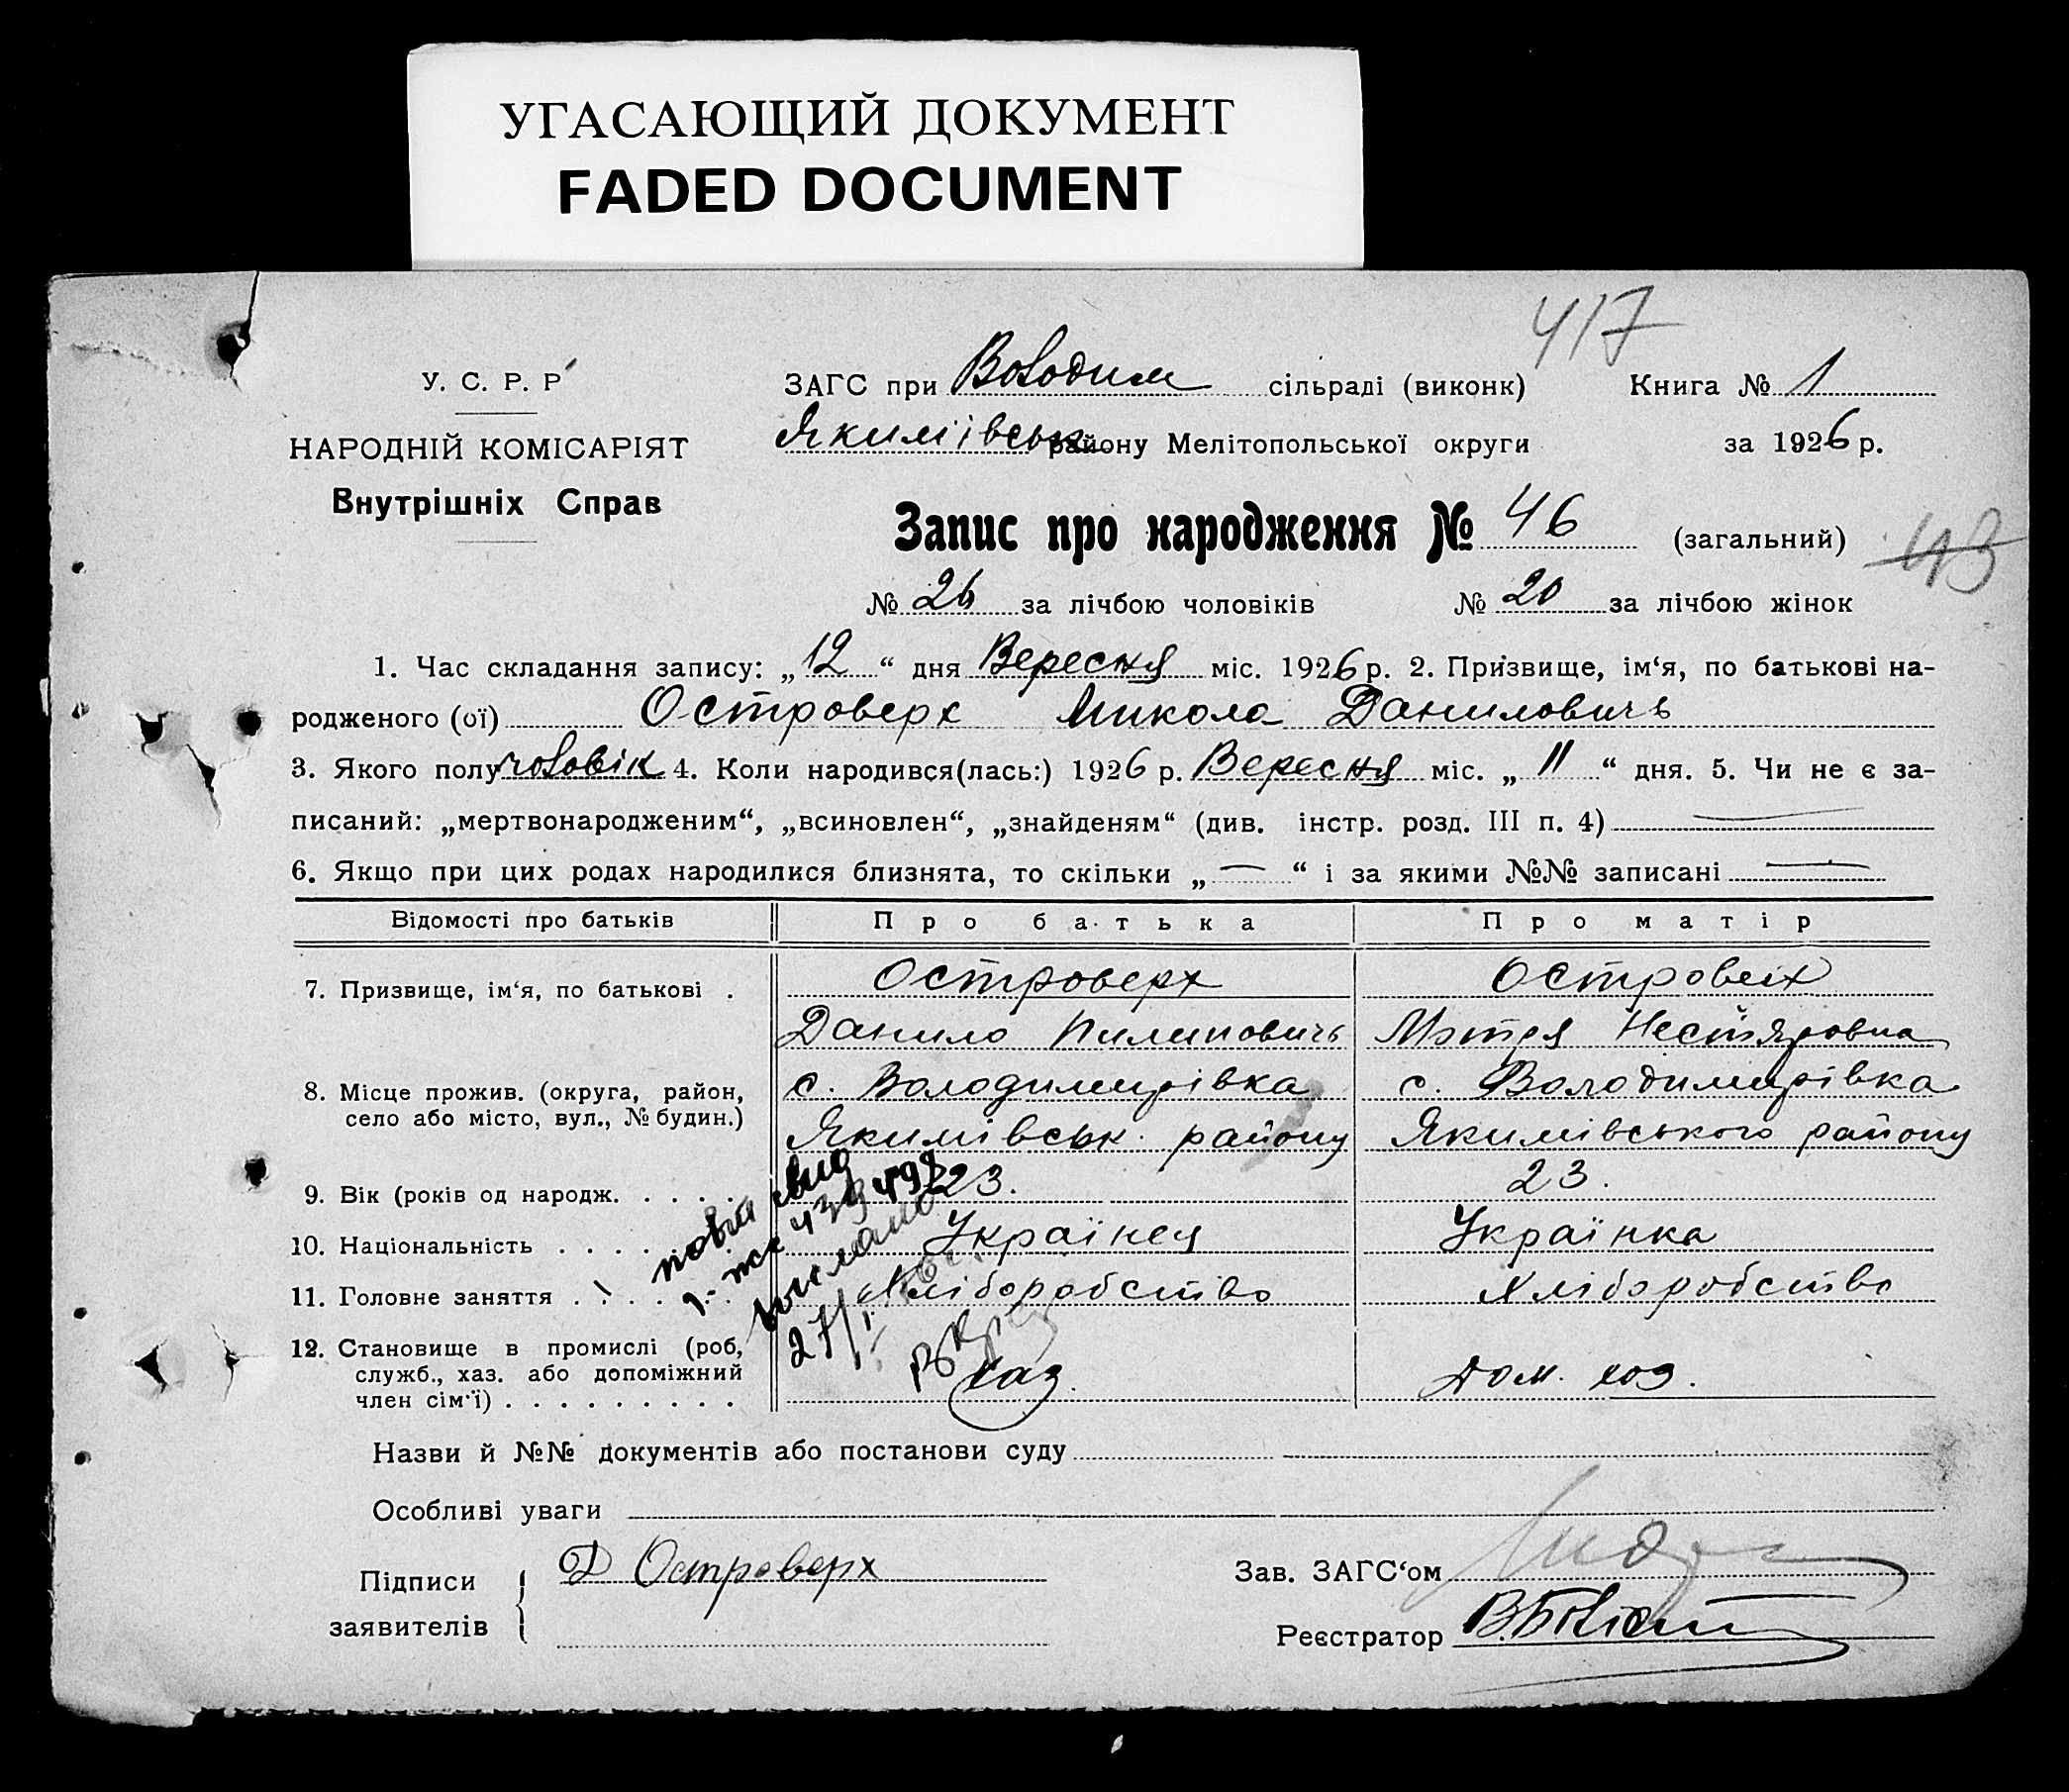 УГАСАЮЩИЙ ДОКУМЕНТ
FADED DOCUMENT
417
У. С. Р. Р
НАРОДНІЙ КОМІСАРІЯТ
Внутрішніх Справ
ЗАГС при Володим сільраді (виконк) Книга № 1
Якимівськ району Мелітопольської округи за 1926 р.
Запис про народження № 46 (загальний) 43
№ 26 за лічбою чоловіків № 20 за лічбою жінок
1. Час складання запису: „12“ дня Вересня міс. 1926 р. 2. Призвище, ім‘я, по батькові на-
родженого (ої) Островерх Микола Даниловичь
3. Якого полу чоловік 4. Коли народився(лась:) 1926 р. Вересня міс. „11“ дня. 5. Чи не є за-
писаний: „мертвонародженим“, „всиновлен“, „знайденям“ (див. інстр. розд. III п. 4) —
6. Якщо при цих родах народилися близнята, то скільки „—“ і за якими №№ записані —
Відомості про батьків Про батька Про матір
7. Призвище, ім‘я, по батькові . Островерх Островерх
Данило Пилиповичь Мотря Нестяровна
8. Місце прожив. (округа, район, с. Володимирівка с. Володимирівка
село або місто, вул., № будин.) Якимівськ. району Якимівського району
9. Вік (років од народж. . . . . . 23. 23.
10. Національність . . . . Українец Українка
11. Головне заняття . . . . Хліборобство Хліборобство
12. Становище в промислі (роб,
служб., хаз. або допоміжний хаз. дом. хоз.
член сім‘ї) . . . . . . . . .
27/I
Назви й №№ документів або постанови суду
Особливі уваги
Підписи Д Островерх Зав. ЗАГС‘ом
заявителів Реєстратор